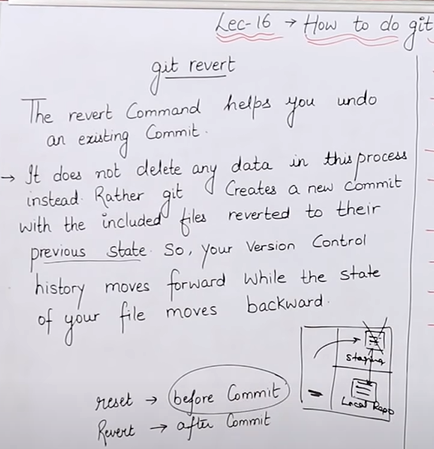 Lec-16 → How to do git
git revert
The revert Command helps you undo
an existing Commit.
→ It does not delete any data in this process
instead. Rather git Creates a new commit
with the included files reverted to their
previous state. So, your Version Control
history moves forward while the state
of your file moves backward.
staging
Local Repo
reset → before Commit
Revert → after Commit